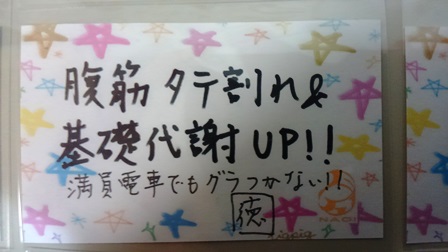 腹筋 タテ割れ&
基礎代謝UP!!
満員電車でもグラつかない!!
徳
NAGI